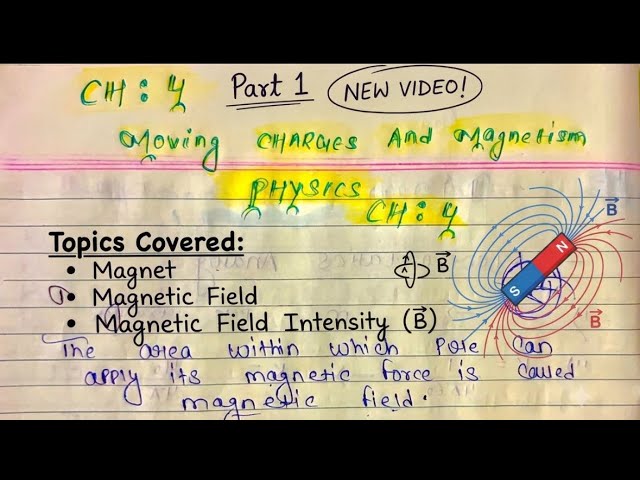 CH : 4 Part 1 NEW VIDEO!
Moving CHARGES And Magnetism
PHYSICS
CH : 4
Topics Covered:
• Magnet
• Magnetic Field
• Magnetic Field Intensity (B⃗)
B⃗
N
S
B⃗
B⃗
The area within which Pole can
apply its magnetic force is called
magnetic field.